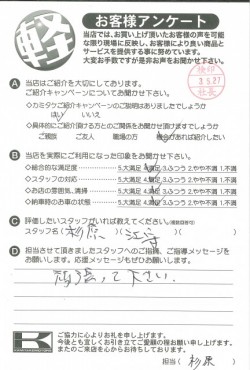 軽
お客様アンケート
当店では、お買い上げ頂いたお客様の声を可能な
限り現場に反映し、お客様により良い商品と
サービスを提供する事に努めています。
大変お手数ですが是非お声をお聞かせ下さい。
検印
3.5.27
社長
A 当店はご紹介を大切にしております。
ご紹介キャンペーンについてお聞かせ下さい。
◇カミタケご紹介キャンペーンのご説明はありましたでしょうか
はい いいえ
◇具体的にご紹介頂ける方とのご関係をお聞かせ頂けますでしょうか
ご親戚 ご友人 職場の方 機会があれば紹介したい
B 当店を実際にご利用になった印象をお聞かせ下さい。
◇総合的な満足度 5.大満足 4.満足 3.ふつう 2.やや不満 1.不満
◇スタッフの対応 5.大満足 4.満足 3.ふつう 2.やや不満 1.不満
◇お店の雰囲気、清掃 5.大満足 4.満足 3.ふつう 2.やや不満 1.不満
◇納車時のお車の状態 5.大満足 4.満足 3.ふつう 2.やや不満 1.不満
C 評価したいスタッフがいれば教えてください。(複数回答可)
スタッフ名( 杉原 )( 江守 )
D 担当させて頂きましたスタッフへのご指摘、ご指導メッセージを
お願いします。応援メッセージもぜひお願いします。
頑張って下さい。
K
ご協力に心よりお礼を申し上げます。
今後とも宜しくお引き立てご愛顧の程お願い申し上げます。
またのご来店を心からお待ちしております。
担当( 杉原 )